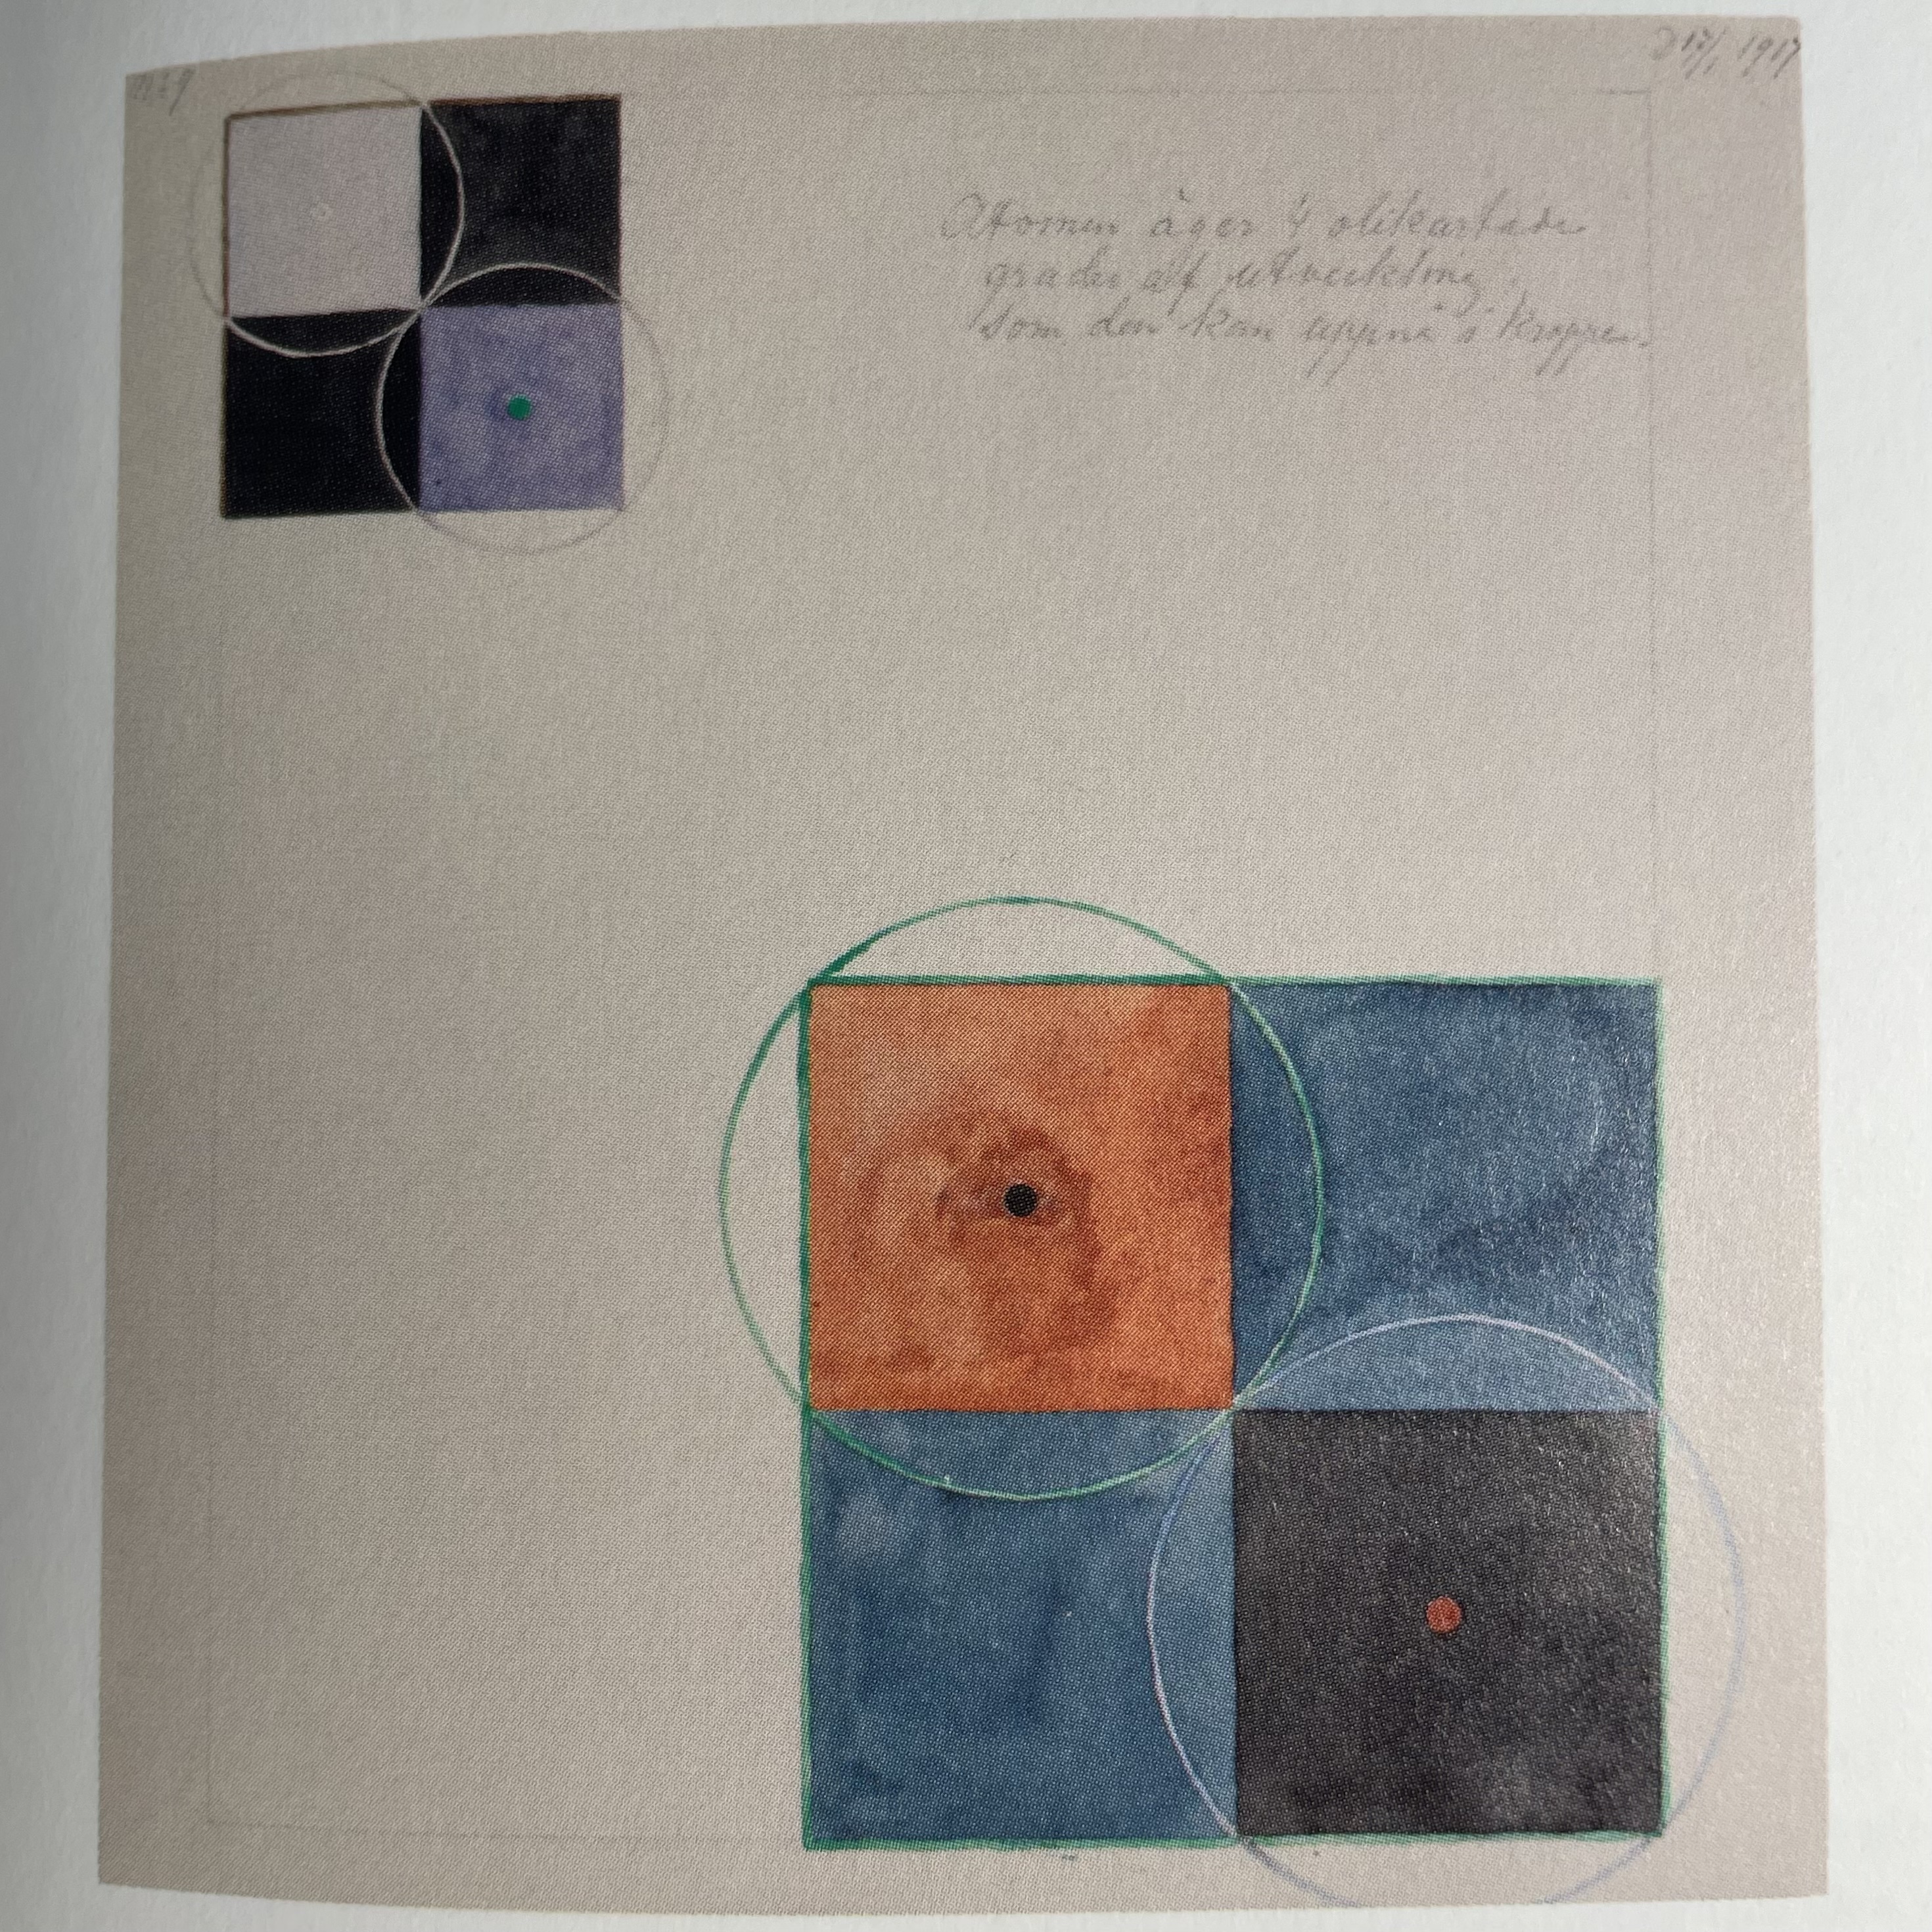 D 17/1 1917
Atomen äger 4 olikartade
grader af utveckling
som den kan uppnå i kroppen.